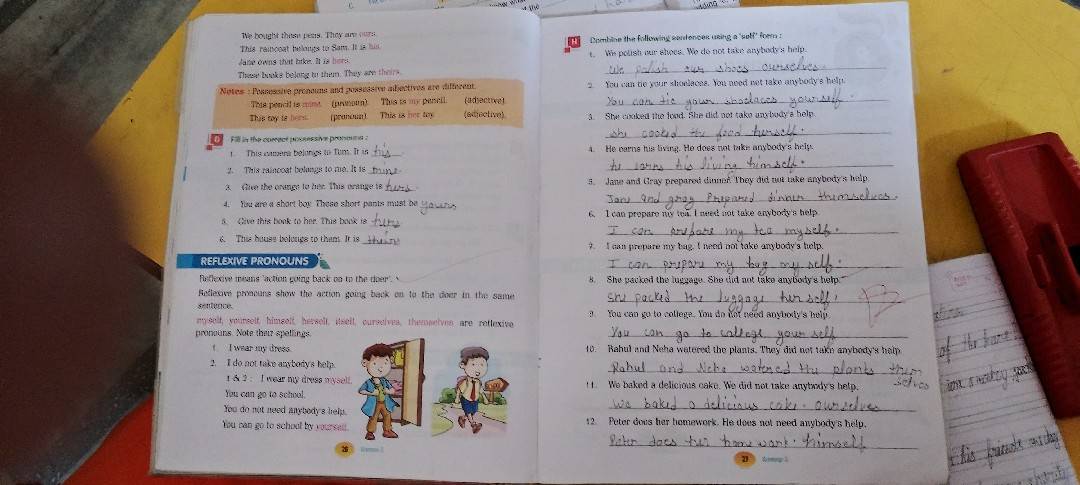 We bought those pens. They are ours.
This raincoat belongs to Sam. It is his.
Jane owns that bike. It is hers.
These books belong to them. They are theirs.
Notes : Possessive pronouns and possessive adjectives are different.
This pencil is mine. (pronoun) This is my pencil. (adjective)
This toy is hers. (pronoun) This is her toy. (adjective)
G Fill in the correct possessive pronouns :
1. This camera belongs to Tom. It is his.
2. This raincoat belongs to me. It is mine.
3. Give the orange to her. This orange is hers.
4. You are a short boy. These short pants must be yours
5. Give this book to her. This book is hers
6. This house belongs to them. It is theirs
REFLEXIVE PRONOUNS
Reflexive means 'action going back on to the doer'.
Reflexive pronouns show the action going back on to the doer in the same
sentence.
myself, yourself, himself, herself, itself, ourselves, themselves are reflexive
pronouns. Note their spellings.
1. I wear my dress.
2. I do not take anybody's help.
1 & 2 : I wear my dress myself.
You can go to school.
You do not need anybody's help.
You can go to school by yourself.
26 Grammar-3
H Combine the following sentences using a 'self' form :
1. We polish our shoes. We do not take anybody's help.
We polish our shoes ourselves.
2. You can tie your shoelaces. You need not take anybody's help.
You can tie your shoelaces yourself.
3. She cooked the food. She did not take anybody's help.
she cooked the food herself.
4. He earns his living. He does not take anybody's help.
he earns his living himself.
5. Jane and Gray prepared dinner. They did not take anybody's help.
Jane and gray Prepared dinner themselves.
6. I can prepare my tea. I need not take anybody's help.
I can prepare my tea myself.
7. I can prepare my bag. I need not take anybody's help.
I can prepare my bag my self.
8. She packed the luggage. She did not take anybody's help.
She packed the luggage her self.
9. You can go to college. You do not need anybody's help.
You can go to college your self
10. Rahul and Neha watered the plants. They did not take anybody's help.
Rahul and Neha watered the plants them
selves
11. We baked a delicious cake. We did not take anybody's help.
We baked a delicious cake. ourselves
12. Peter does her homework. He does not need anybody's help.
Peter does her home work. himself
27 Grammar-3
of the
his friends